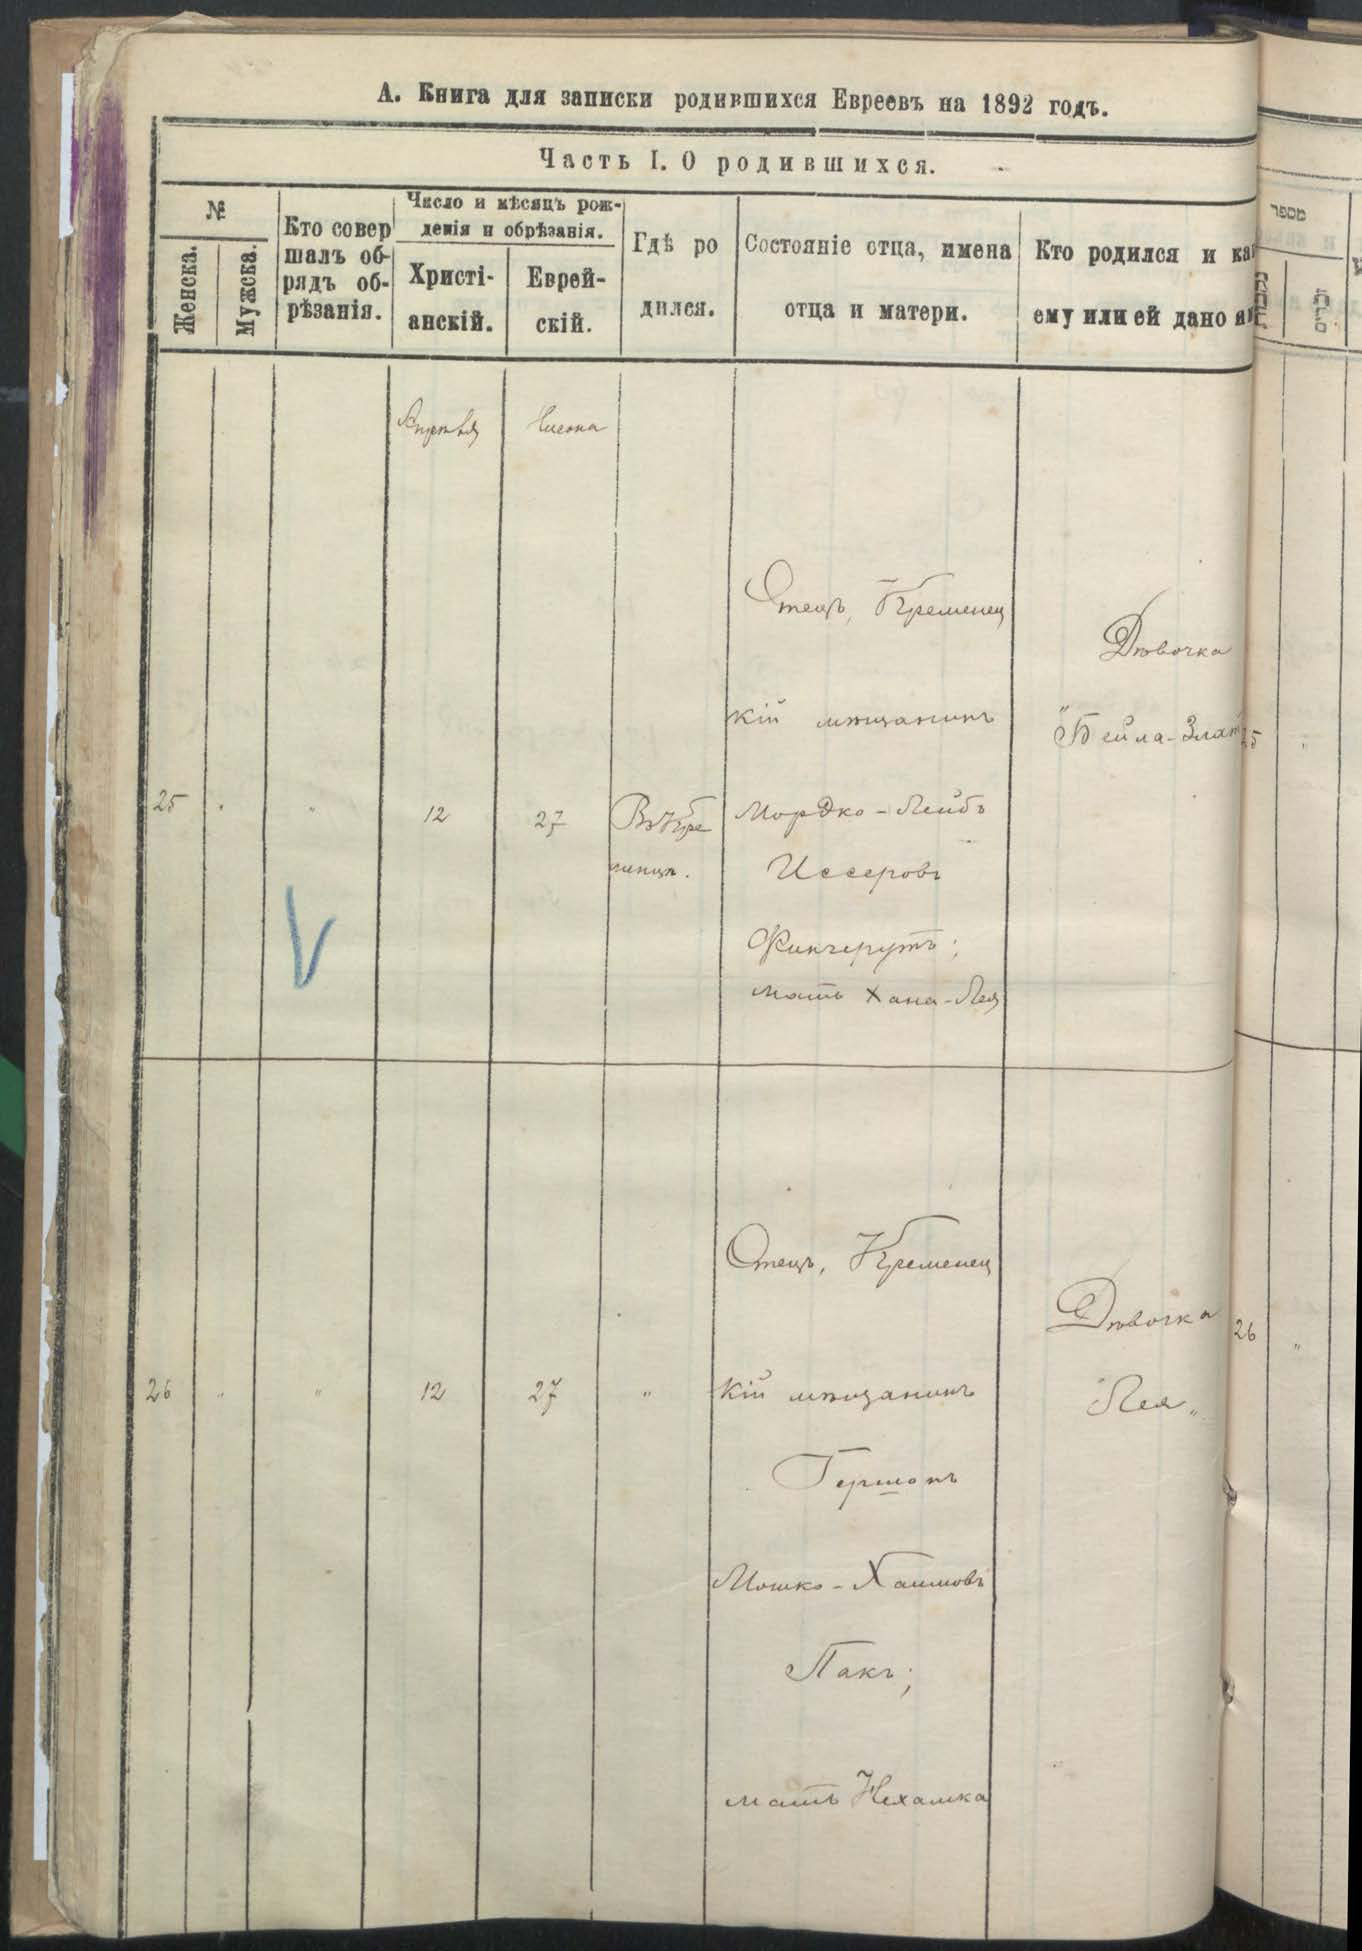 А. Книга для записки родившихся Евреевъ на 1892 годъ.
Часть I. О родившихся.
№
Женска.
Мужска.
Кто совер
шалъ об-
рядъ об-
рѣзанія.
Число и мѣсяцъ рож-
денія и обрѣзанія.
Христі-
анскій.
Еврей-
скій.
Гдѣ ро
дился.
Состояніе отца, имена
отца и матери.
Кто родился и ка
ему или ей дано и
מספר
נקבות
זכרים
Апрѣля
Нисона
25 " " 12 27
Въ Кре
менцѣ.
Отецъ, Кременец
кій мѣщанинъ
Мордко-Лейбъ
Иссеровъ
Фингерутъ;
мать Хана-Лея
Дѣвочка
"Бейла-Злат
25 "
26 " " 12 27 "
Отецъ, Кременец
кій мѣщанинъ
Гершонъ
Мошко-Хаимовъ
Пакъ;
мать Нехамка
Дѣвочка
"Лея"
26 "